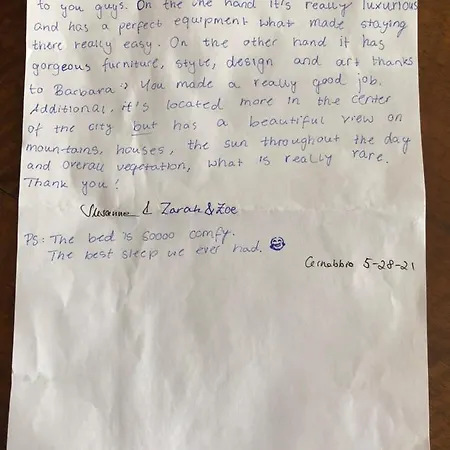 to you guys. On the one hand it's really luxurious
and has a perfect equipment what made staying
there really easy. On the other hand it has
gorgeous furniture, style, design and art thanks
to Barbara :) You made a really good job.
Additional, it's located more in the center
of the city but has a beautiful view on
mountains, houses, the sun throughout the day
and overall vegetation, what is really rare.
Thank you!
Susanne & Zarah & Zoe
PS: The bed is soooo comfy.
The best sleep we ever had.
Cernobbio 5-28-21